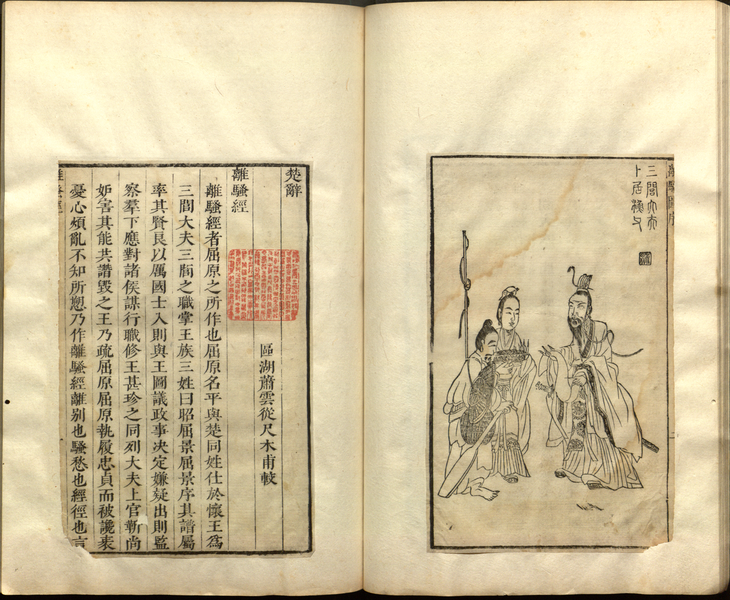 三閭大夫
卜居漁父
楚辭
區湖蕭雲從尺木甫較
離騷經
離騷經者屈原之所作也屈原名平與楚同姓仕於懷王為
三閭大夫三閭之職掌王族三姓曰昭屈景屈景序其譜屬
率其賢良以厲國士入則與王圖議政事决定嫌疑出則監
察羣下應對諸侯謀行職修王甚珍之同列大夫上官靳尚
妒害其能共譖毀之王乃疏屈原屈原執履忠貞而被讒衺
憂心煩亂不知所愬乃作離騷經離别也騷愁也經徑也言